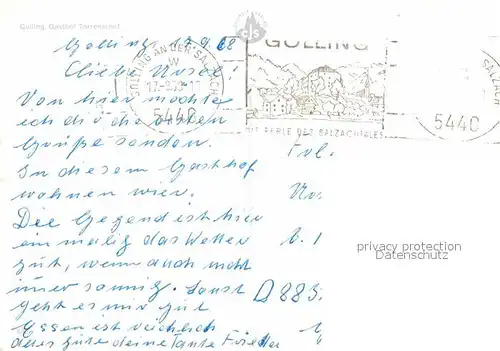 Golling, Gasthof Torrenerhof
cls
Golling 17.9.68
Liebe Rosel!
GOLLING AN DER SALZACH
5440
GOLLING
DIE PERLE DES SALZACHTALES
SALZACH
5440
Von hier möchte
ich dir die besten
Grüße senden.
In diesem Gasthof
wohnen wier.
Die Gegend ist hier
ein malig das Wetter
gut, wenn auch nicht
imer sonnig. Sonst
geht es mir gut
Essen ist reichlich
alles gute deine Tante
Frl.
D 885
privacy protection
Datenschutz